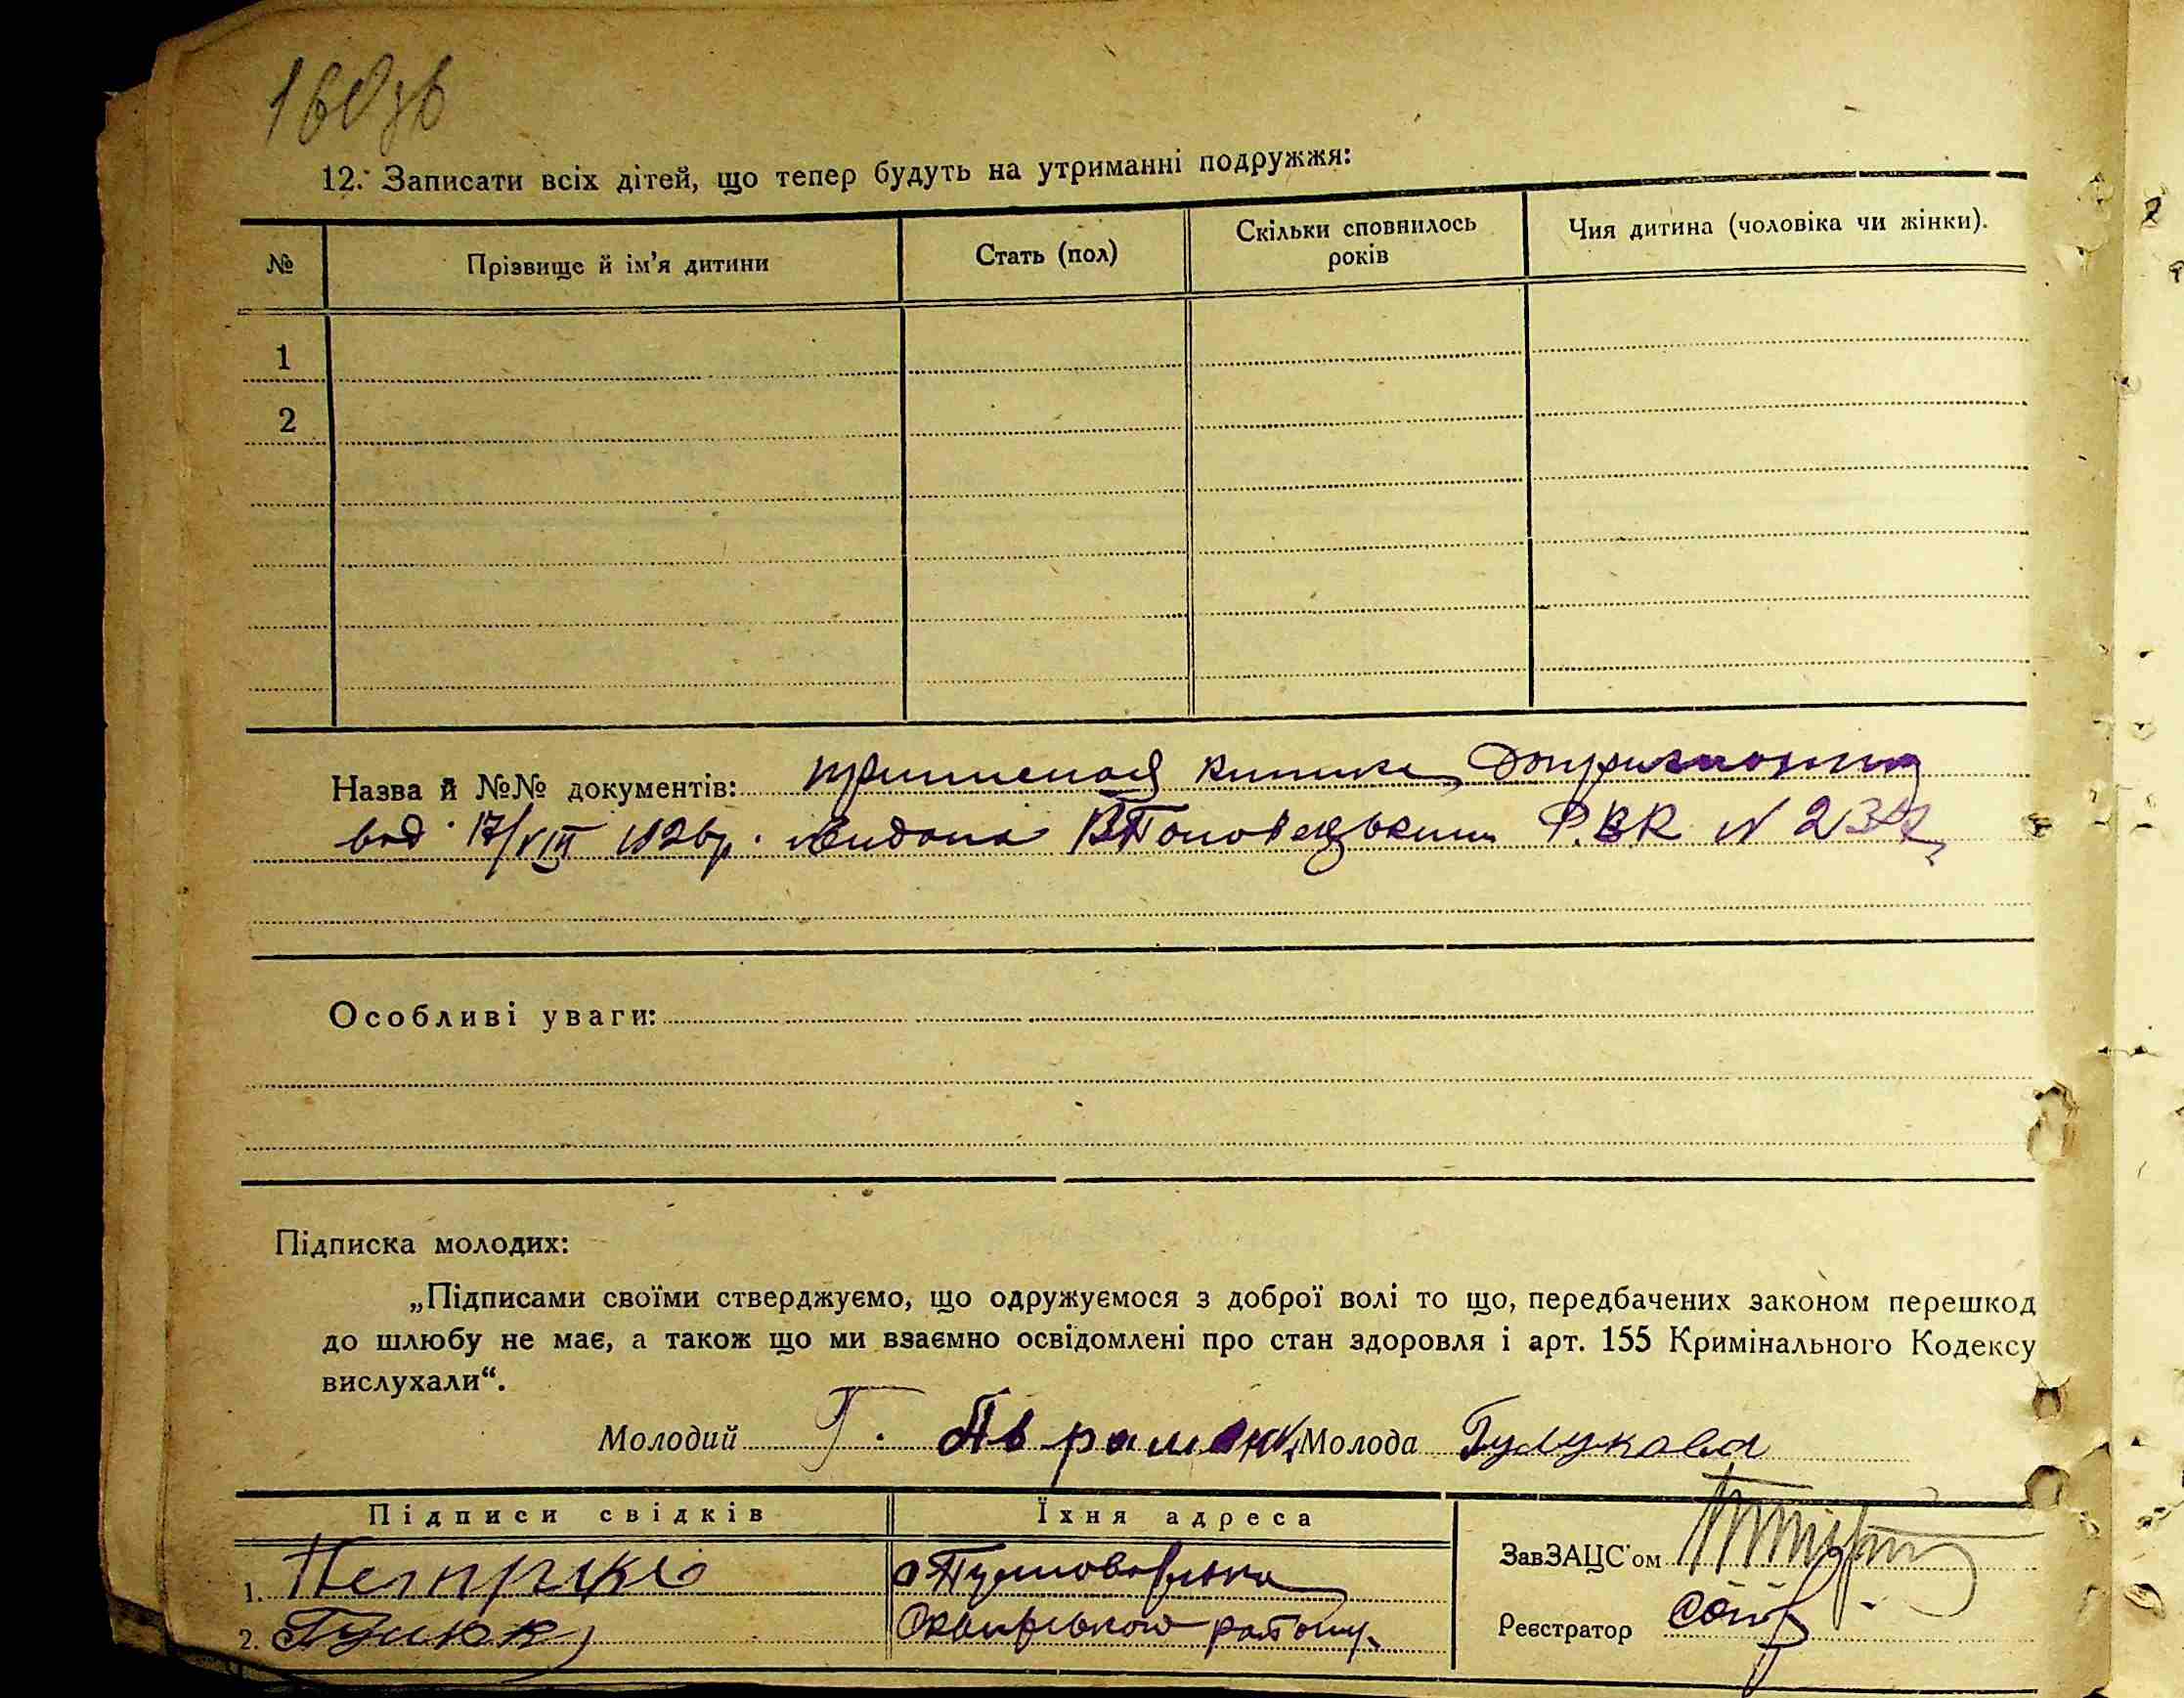 160зв
12. Записати всіх дітей, що тепер будуть на утриманні подружжя:
№ Прізвище й ім’я дитини Стать (пол) Скільки сповнилось років Чия дитина (чоловіка чи жінки).
1
2
Назва й №№ документів:
від 17/VIII 1926р. видана Р.В.К N
Особливі уваги:
Підписка молодих:
„Підписами своїми стверджуємо, що одружуємося з доброї волі то що, передбачених законом перешкод
до шлюбу не має, а також що ми взаємно освідомлені про стан здоровля і арт. 155 Кримінального Кодексу
вислухали“.
Молодий Г. Авраменк Молода
Підписи свідків Їхня адреса
ЗавЗАЦС’ом
1.
2. Сквирського району
Реєстратор